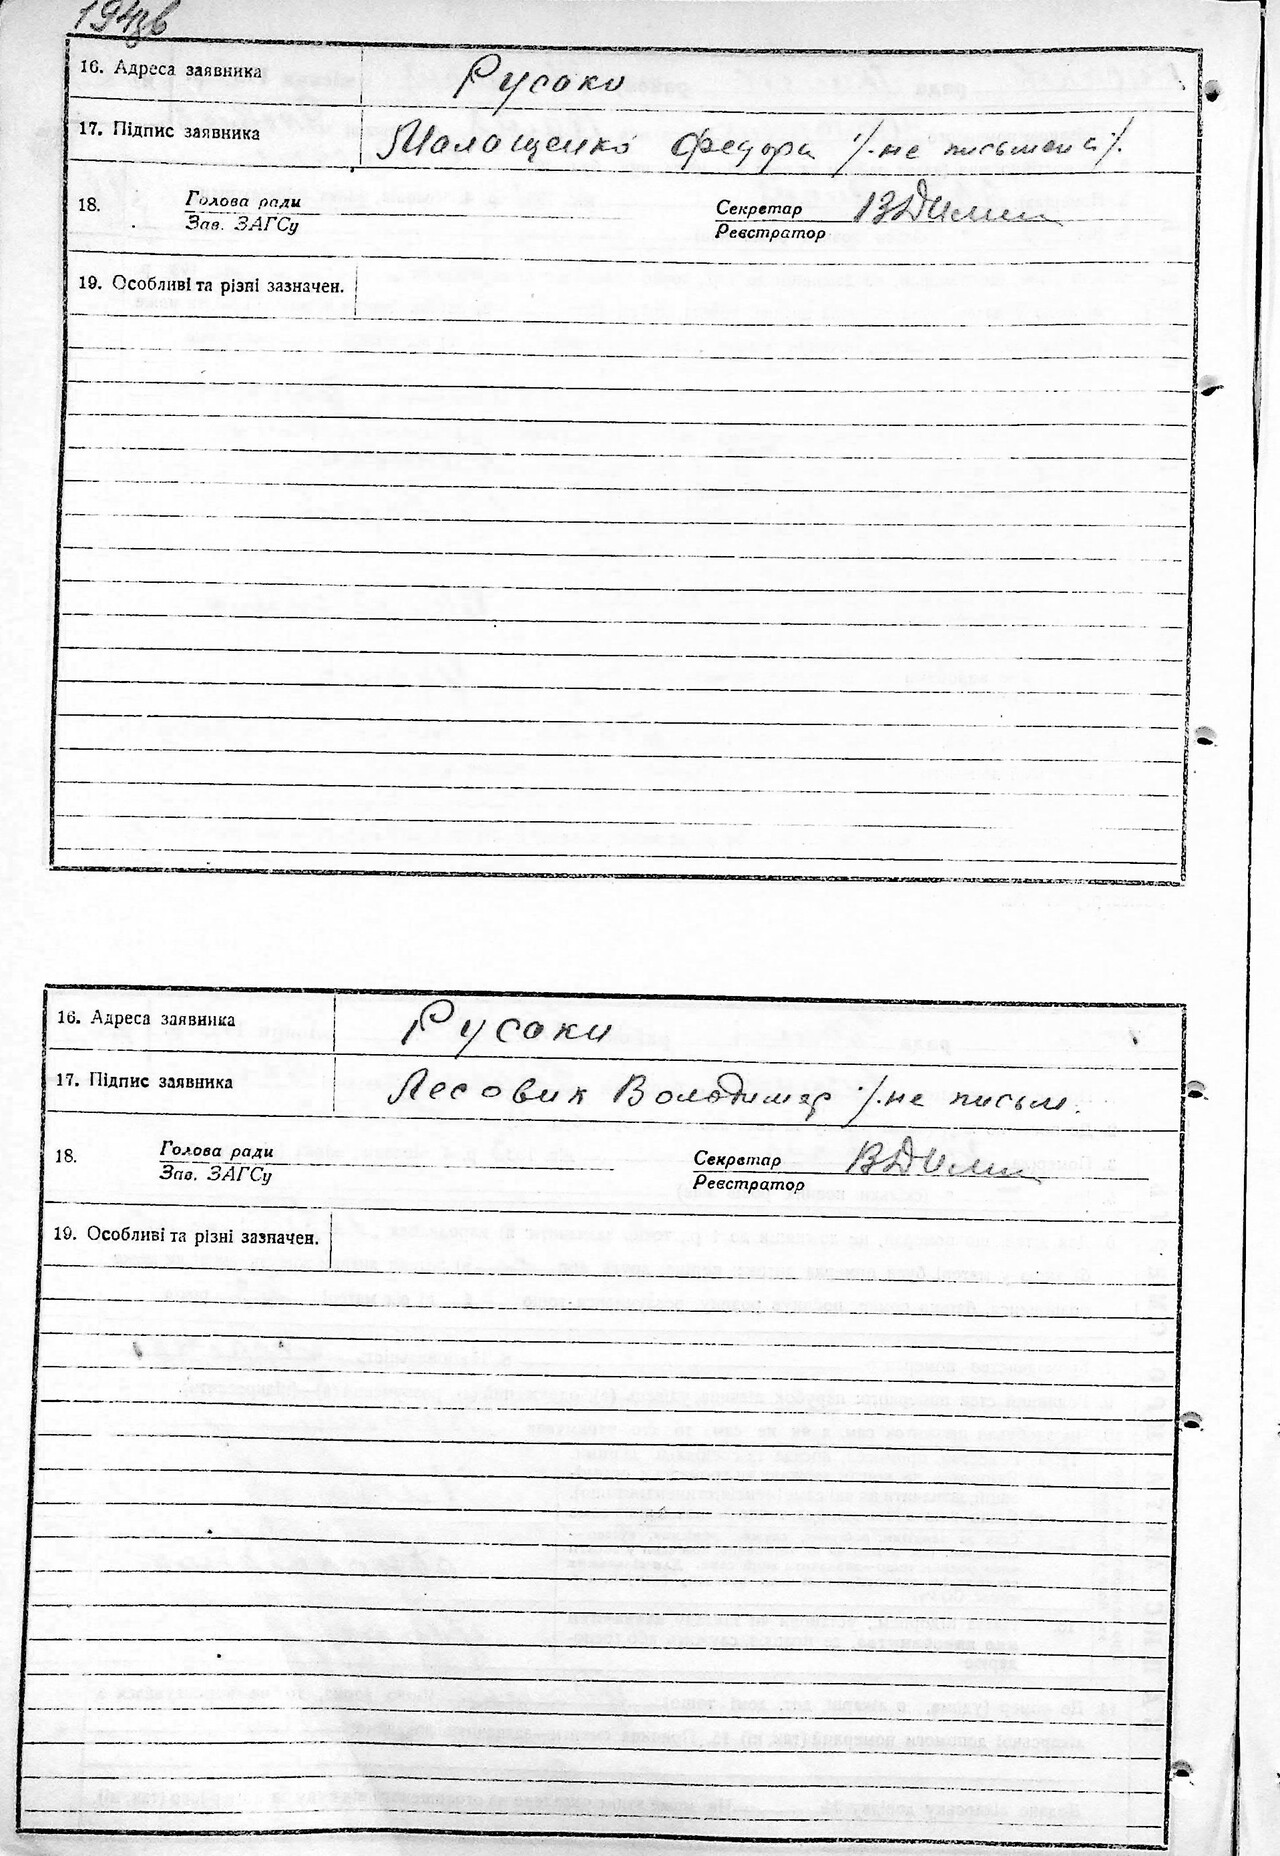 194зв
16. Адреса заявника Русаки
17. Підпис заявника Малащенко Федора /·не письмена/.
18. Голова ради Секретар
Зав. ЗАГСу Реєстратор
19. Особливі та різні зазначен.
16. Адреса заявника Русаки
17. Підпис заявника Лесовик Володимер /·не письм.
18. Голова ради Секретар
Зав. ЗАГСу Реєстратор
19. Особливі та різні зазначен.